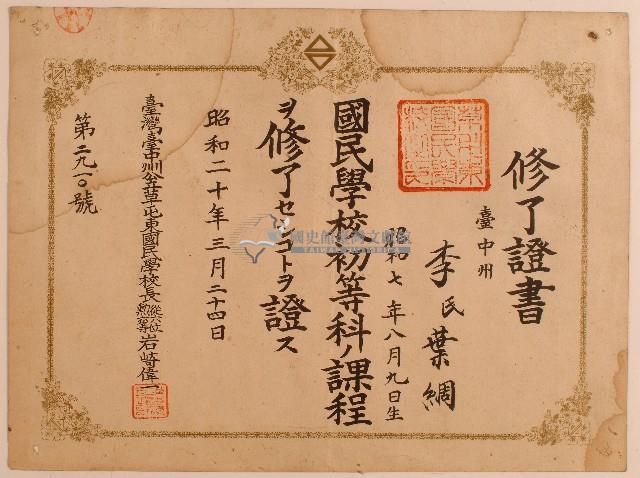 修了證書
臺中州
李氏葉綢
昭和七年八月九日生
國民學校初等科ノ課程
ヲ修了セシコトヲ證ス
昭和二十年三月二十四日
臺灣臺中州立草屯東國民學校長 從七位勲八等 岩崎偉一
第二九一〇號
國史館臺灣文獻館